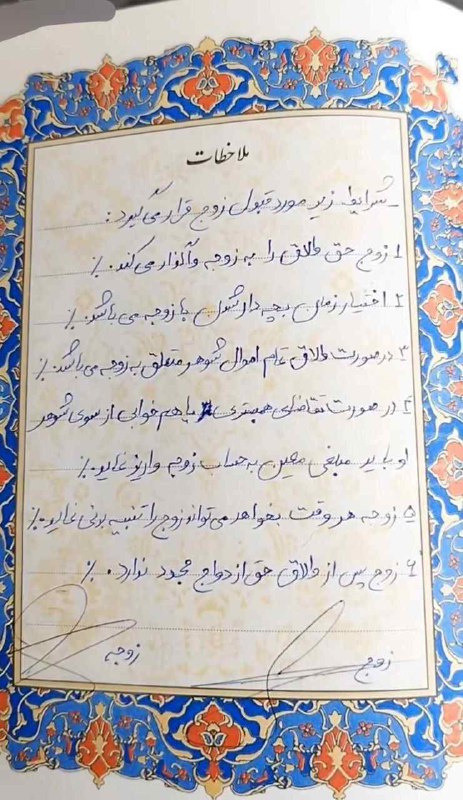 ملاحظات
_ شرایط زیر مورد قبول زوج قرار می گیرد:
۱ زوج حق طلاق را به زوجه واگذار می کند. ٪
۲ اختیار زمان بچه دار شدن با زوجه می باشد. ٪
۳ در صورت طلاق تمام اموال شوهر متعلق به زوجه می باشد. ٪
۴ در صورت تقاضای همبستری یا هم خوابی از سوی شوهر
او باید مبلغی معین به حساب زوجه واریز نماید. ٪
۵ زوجه هر وقت بخواهد می تواند زوج را تنبیه بدنی نماید. ٪
۶ زوج پس از طلاق حق ازدواج مجدد ندارد. ٪
زوج
زوجه